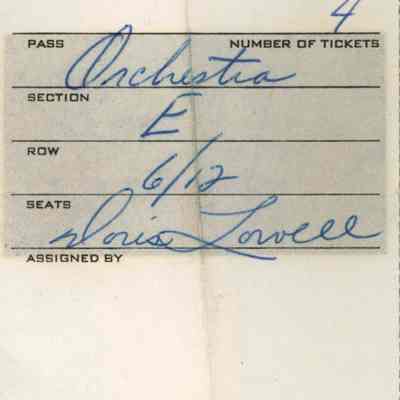 4
PASS NUMBER OF TICKETS
Orchestra
SECTION
E
ROW
6/12
SEATS
Doris Lowell
ASSIGNED BY